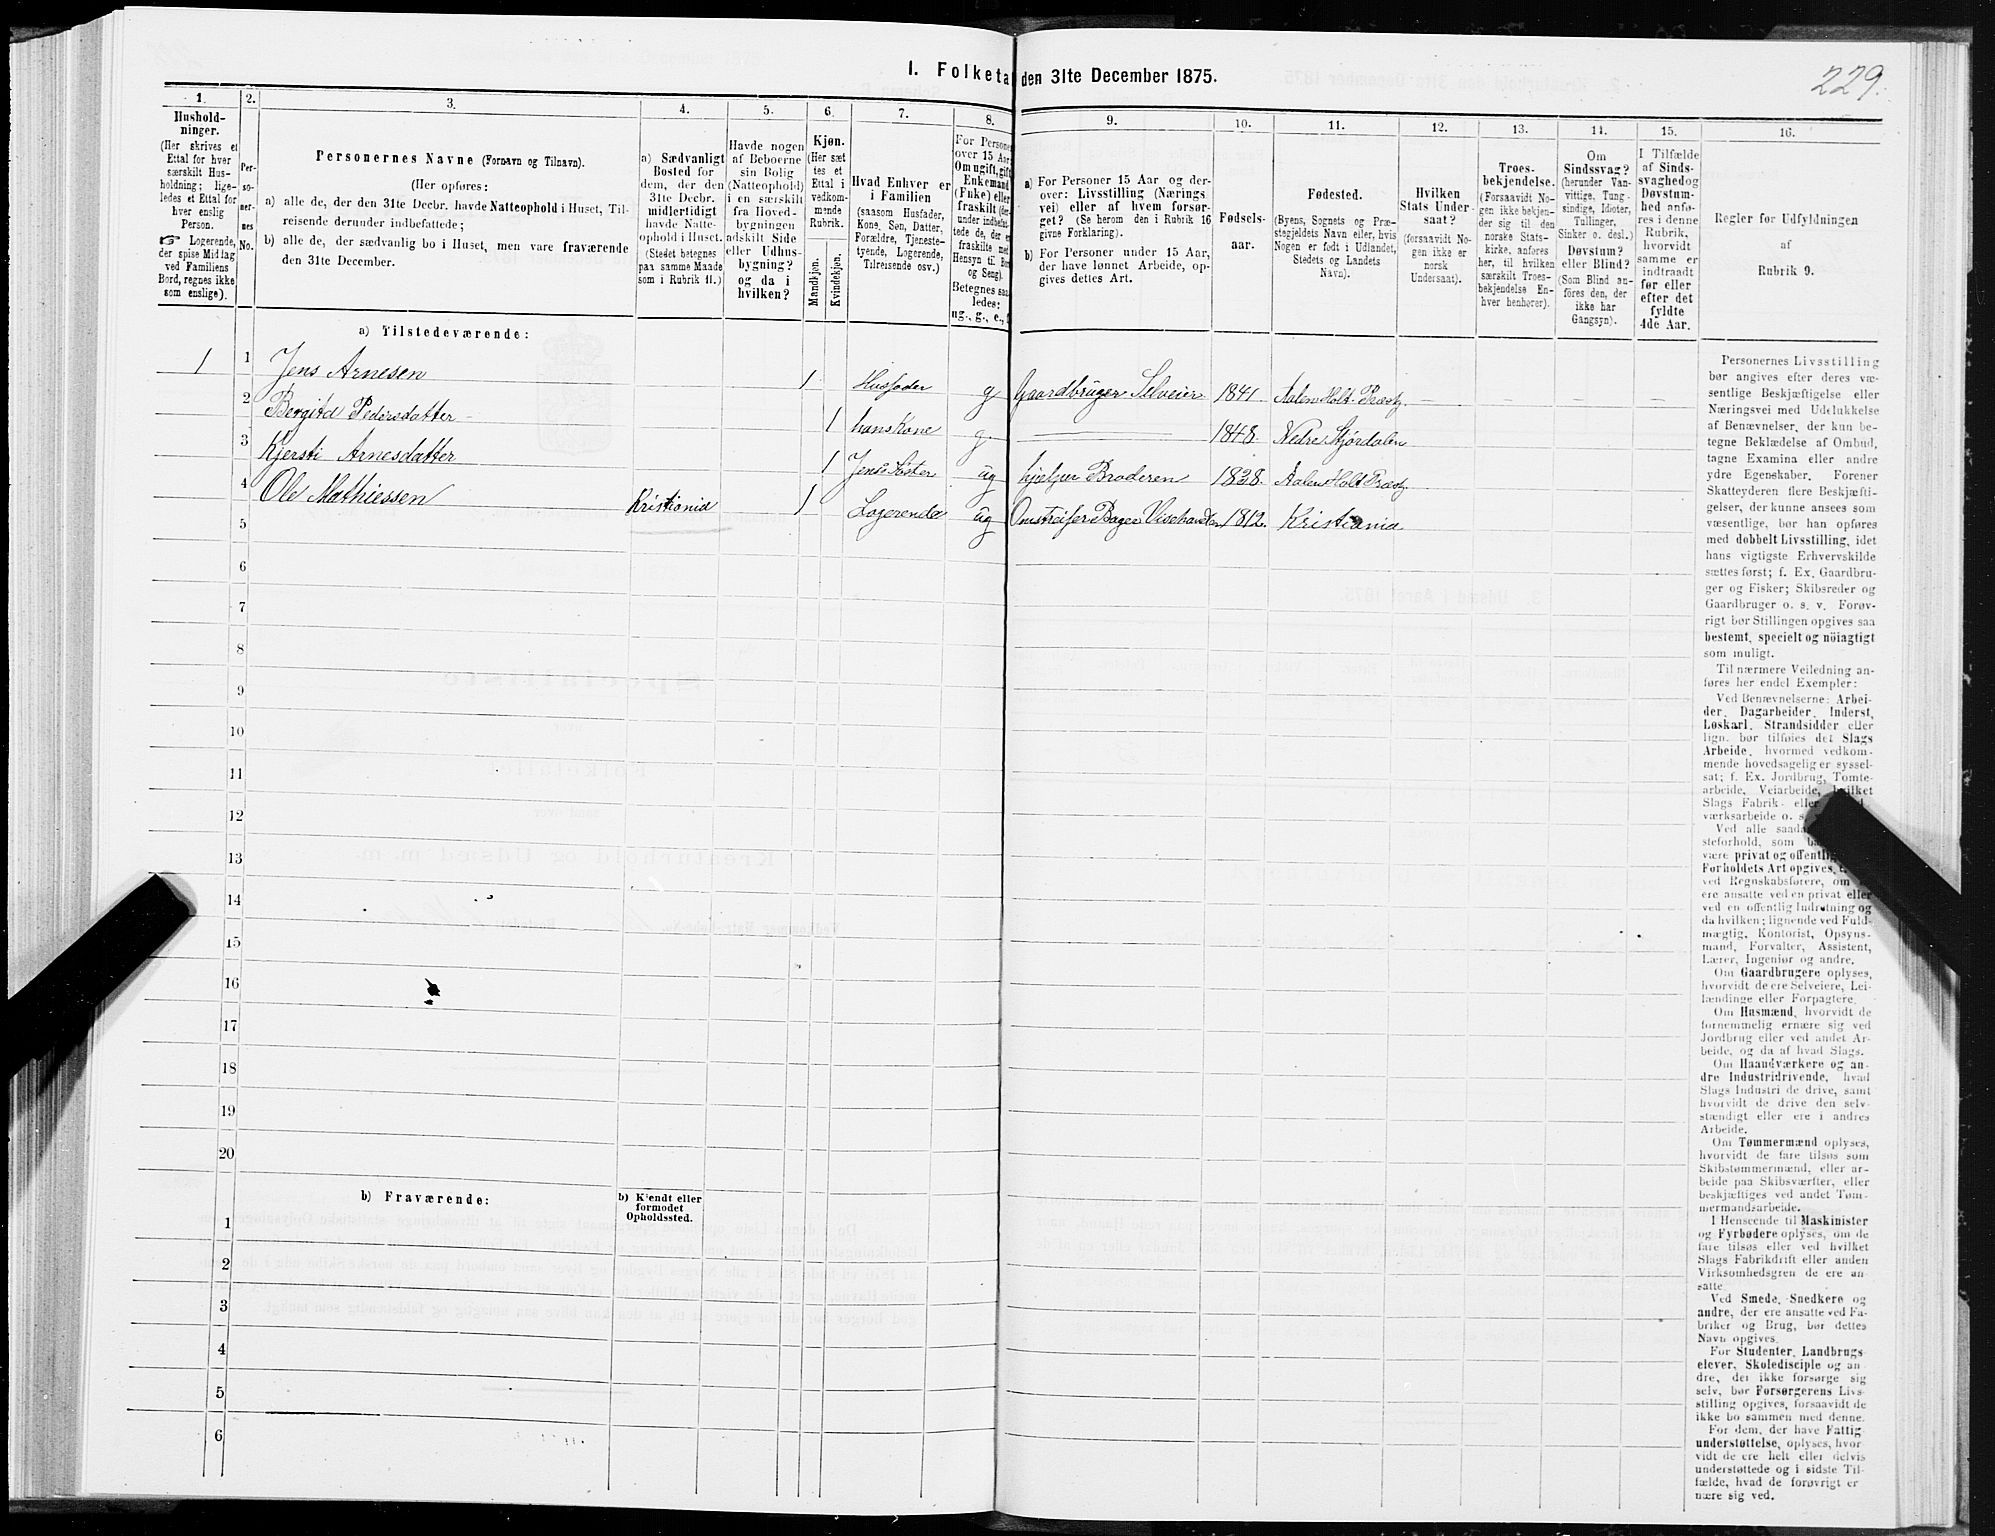 229.
I. Folketa den 31te December 1875.
1. 2. 3. 4. 5. 6. 7. 8. 9. 10. 11. 12. 13. 14. 15. 16.
Hushold-
ninger.
(Her skrives et
Ettal for hver
særskilt Hus-
holdning; lige-
ledes et Ettal for
hver enslig
Person.
☞ Logerende,
der spise Middag
ved Familiens
Bord, regnes ikke
som enslige).
Per-
so-
ner-
nes
No.
Personernes Navne (Fornavn og Tilnavn).
(Her opføres:
a) alle de, der den 31te Decbr. havde Natteophold i Huset, Til-
reisende derunder indbefattede;
b) alle de, der sædvanlig bo i Huset, men vare fraværende
den 31te December.
a) Sædvanligt
Bosted for
dem, der den
31te Decbr.
midlertidigt
havde Natte-
ophold i Huset.
(Stedet betegnes
paa samme Maade
som i Rubrik 11.)
Havde nogen
af Beboerne
sin Bolig
(Natteophold)
i en særskilt
fra Hoved-
bygningen
adskilt Side
eller Udhus-
bygning?
og da i
hvilken?
Kjøn.
(Her sæt
tes et
Ettal i
vedkom-
mende
Rubrik.
Mandkjøn.
Kvindekjøn.
Hvad Enhver er
i Familien
(saasom Husfader,
Kone, Søn, Datter,
Forældre, Tjeneste-
tyende, Logerende,
Tilreisende osv.)
For Persone
over 15 Aar
Om ugift, gift
Enkemand
(Enke) eller
fraskilt (der-
under indbefat-
tede de, der er
fraskilte med
Hensyn til Bo
og Seng).
Betegnes saa
ledes:
ug., g., e., f
a) For Personer 15 Aar og der-
over: Livsstilling (Nærings
vei) eller af hvem forsør-
get? (Se herom den i Rubrik 16
givne Forklaring).
b) For Personer under 15 Aar,
der have lønnet Arbeide, op-
gives dettes Art.
Fødsels-
aar.
Fødested.
(Byens, Sognets og Præ-
stegjeldets Navn eller, hvis
Nogen er født i Udlandet,
Stedets og Landets
Navn).
Hvilken
Stats Under-
saat?
(forsaavidt No-
gen ikke er
norsk
Undersaat).
Troes-
bekjendelse.
(Forsaavidt No-
gen ikke bekjen-
der sig til den
norske Stats-
kirke, anføres
her, til hvilken
særskilt Troes-
bekjendelse En-
hver henhører).
Om
Sindssvag?
(herunder Van-
vittige, Tung-
sindige, Idioter,
Tullinger,
Sinker o. desl.)
Døvstum?
eller Blind?
(Som Blind an-
føres den, der
ikke har
Gangsyn).
I Tilfælde
af Sinds-
svaghed og
Døvstum-
hed anfø-
res i denne
Rubrik,
hvorvidt
samme er
indtraadt
før eller
efter det
fyldte
4de Aar.
Regler for Udfyldningen
af
Rubrik 9.
a) Tilstedeværende:
1 1 Jens Arnesen 1 Husfader g Gaardbruger Selveier 1841 Aalen Holt. Præstg. — — — —
2 Bergitd Pedersdatter 1 hans Kone g. 1848. Nedre Stjórdalen
3 Kjersti Arnesdatter 1 Jens Søster ug hjelper Broderen 1838. Aalen Holt Præstg
4 Ole Mathiessen Kristiania 1 Logerende ug Omstreifer Boger Visehandler 1812. Kristiania
5
6
7
8
9
10
11
12
13
14
15
16
17
18
19
20
b) Fraværende:
b) Kjendt eller
formodet
Opholdssted.
1
2
3
4
5
6
Personernes Livsstilling
bør angives efter deres væ-
sentlige Beskjæftigelse eller
Næringsvei med Udelukkelse
af Benævnelser, der kun be-
tegne Beklædelse af Ombud,
tagne Examina eller andre
ydre Egenskaber. Forener
Skatteyderen flere Beskjæfti-
gelser, der kunne ansees som
væsentlige, bør han opføres
med dobbelt Livsstilling, idet
hans vigtigste Erhvervskilde
sættes først; f. Ex. Gaardbru-
ger og Fisker; Skibsreder og
Gaardbruger o. s. v. Forøv-
rigt bør Stillingen opgives saa
bestemt, specielt og nöiagtigt
som muligt.
Til nærmere Veiledning an-
føres her endel Exempler:
Ved Benævnelserne: Arbei-
der, Dagarbeider, Inderst,
Løskarl, Strandsidder eller
lign. bør tilføies det Slags
Arbeide, hvormed vedkom-
mende hovedsagelig er syssel-
sat; f. Ex. Jordbrug, Tomte-
arbeide, Veiarbeide, hvilket
Slags Fabrik- eller
værksarbeide o. s.
Ved alle saada
steforhold, som
være privat og offentlig
Forholdets Art opgives,
ved Regnskabsførere, om
ere ansatte ved en privat eller
ved en offentlig Indretning og
da hvilken; lignende ved Fuld-
mægtig, Kontorist, Opsyns-
mand, Forvalter, Assistent,
Lærer, Ingeniør og andre.
Om Gaardbrugere oplyses,
hvorvidt de ere Selveiere, Lei-
lændinge eller Forpagtere.
Om Husmænd, hvorvidt de
fornemmelig ernære sig ved
Jordbrug eller ved andet Ar-
beide, og da af hvad Slags.
Om Haandværkere og an-
dre Industridrivende, hvad
Slags Industri de drive, samt
hvorvidt de drive den selv-
stændigt eller ere i andres
Arbeide.
Om Tømmermænd oplyses,
hvorvidt de fare tilsøs som
Skibstømmermænd, eller ar-
beide paa Skibsværfter, eller
beskjæftiges ved andet Tøm-
mermandsarbeide.
I Henseende til Maskinister
og Fyrbødere oplyses, om de
fare tilsøs eller ved hvilket
Slags Fabrikdrift eller anden
Virksomhedsgren de ere an-
satte.
Ved Smede, Snedkere og
andre, der ere ansatte ved Fa-
briker og Brug, bør dettes
Navn opgives.
For Studenter, Landbrugs-
elever, Skoledisciple og an-
dre, der ikke forsørge sig
selv, bør Forsørgerens Livs-
stilling opgives, forsaavidt de
ikke bo sammen med denne.
For dem, der have Fattig
understøttelse, oplyses, hvor
vidt de ere helt eller delvis
understøttede og i sidste Til-
fælde, hvad de forøvrigt er
nære sig ved.